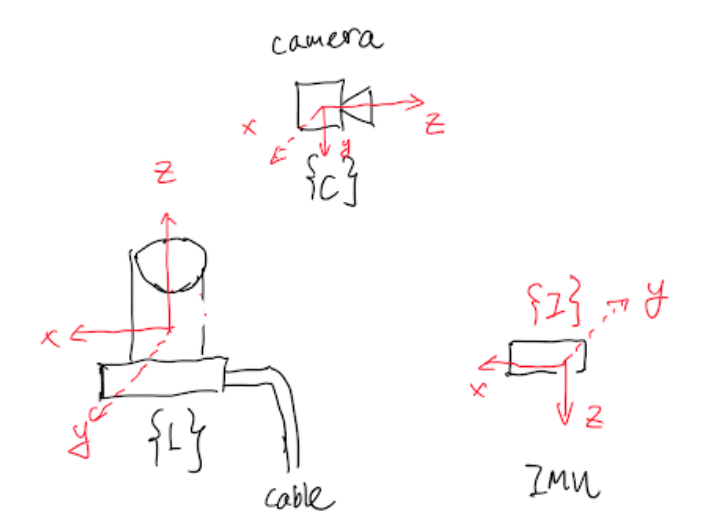 camera
x
z
y
{C}
z
x
y
{L}
cable
{I}
y
x
z
IMU